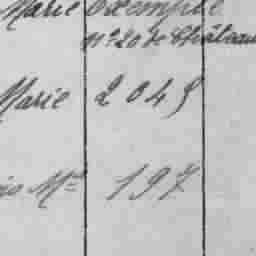 Marie Exempté
nº 20 de Château
Marie 2045
Mie 197